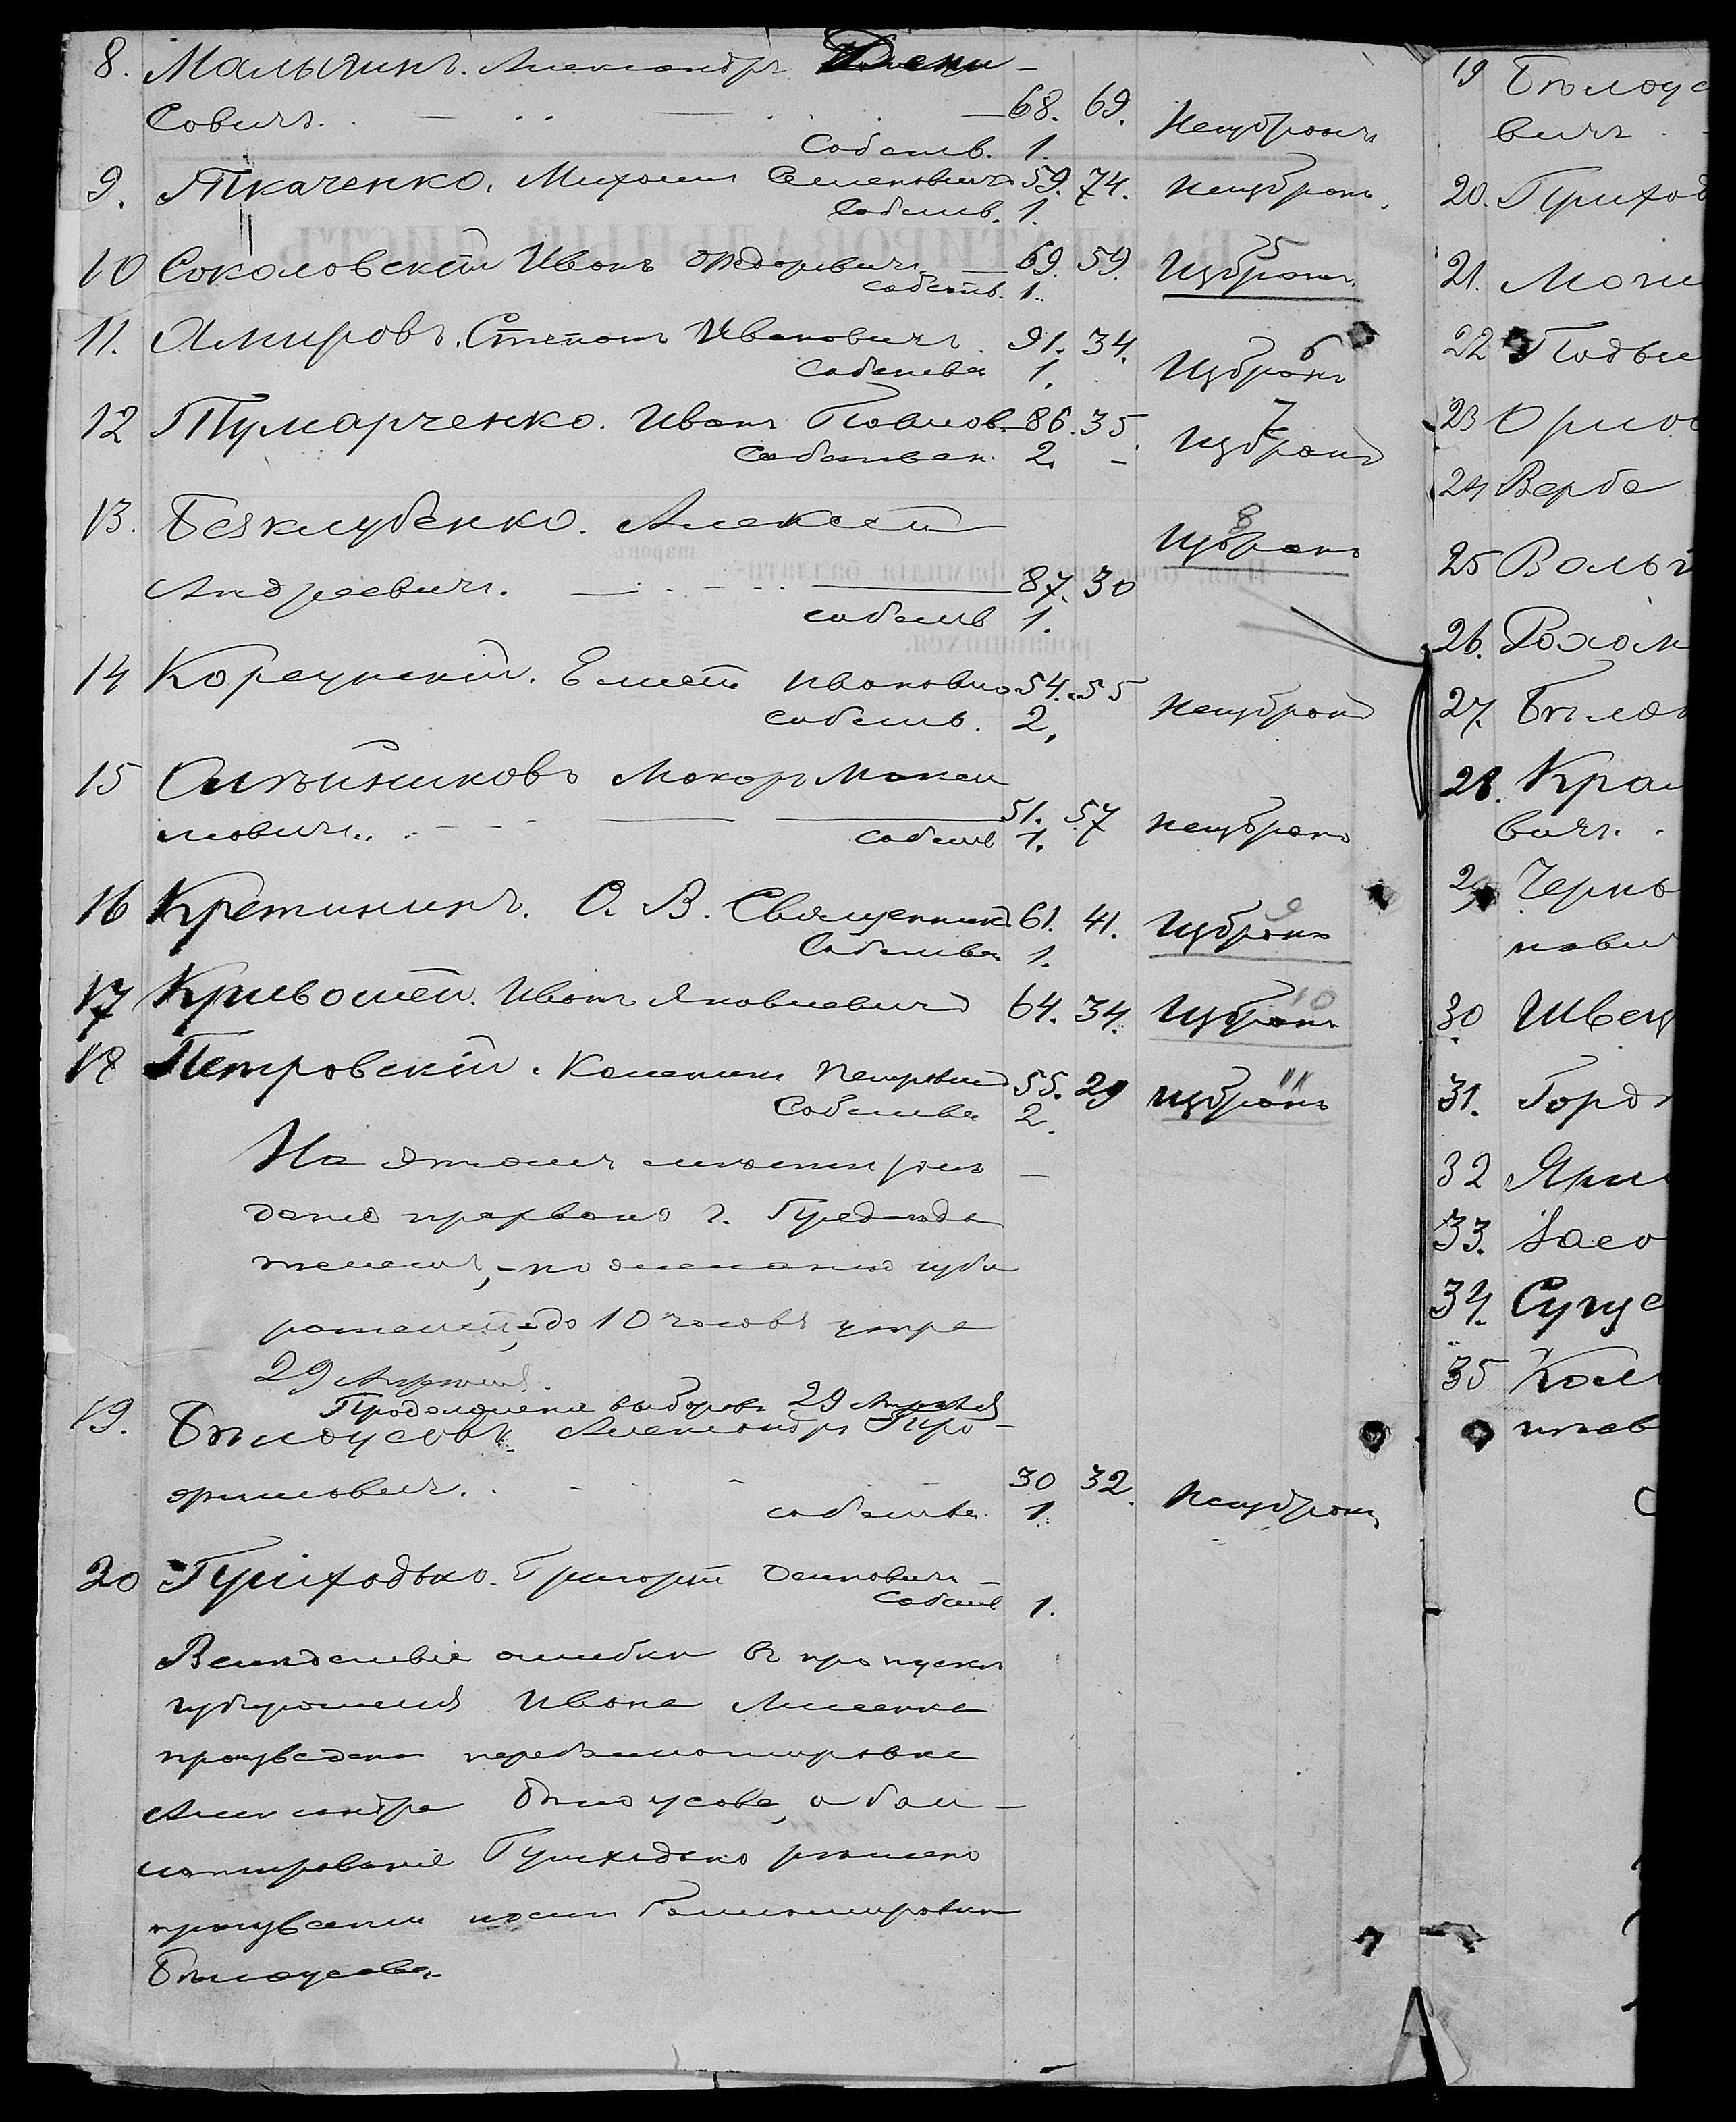 8. Малыгинъ. Александръ Дени-
совичъ. 68. 69. Неизбранъ
Собств. 1.
9. Ткаченко. Михаилъ Семеновичъ 59. 74. Неизбранъ.
Собств. 1.
10 Соколовскій Иванъ Федоровичъ 69. 59. Избранъ. 5
собств. 1.
11. Амировъ. Степанъ Ивановичъ. 91. 34. Избранъ 6
Собствен 1.
12 Тумарченко. Иванъ Павлов. 86. 35. Избранъ 7
Собствен. 2. -
13. Безклубенко. Алексѣй Избранъ 8
Андреевичъ. 87. 30
собств 1.
14 Корецкій. Елисей Ивановичъ 54. 55 Неизбранъ
собств. 2.
15 Олейниковъ Макаръ Макси
мовичъ. 51. 57 Неизбранъ
собств 1.
16 Кретининъ. О. В. Священникъ 61. 41. Избранъ 9
Собствен 1.
17 Кривошей. Иванъ Яковлевичъ 64. 34. Избранъ 10
18 Петровскій. Каленикъ Петровичъ 55. 29 Избранъ 11
Собствен 2.
На этомъ мѣстѣ засѣ-
даніе прервано г. Предсѣда
телемъ, по желанію изби
рателей, до 10 часовъ утра
29 Апрѣля.
Продолженіе выборовъ 29 Апрѣля
19. Бѣлоусовъ. Александръ Тро-
фимовичъ. 30 32. Неизбранъ
собствен. 1.
20 Приходько. Григорій Осиповичъ -
Собств 1.
Вслѣдствіе ошибки въ пропускѣ
избирателя Ивана Лисенка
произведена перебаллотировка
Александра Бѣлоусова, а бал-
лотированіе Приходько рѣшено
произвести послѣ баллотировки
Бѣлоусова.
19 Бѣлоус
вичъ
20. Приход
21. Моги
22 Подви
23 Орлов
24 Верба
25 Воль
26. Рохом
27. Бѣло
28. Кра
вичъ.
29 Черны
нови
30 Швец
31. Горд
32 Яри
33. Засо
34. Сугус
35 Кол